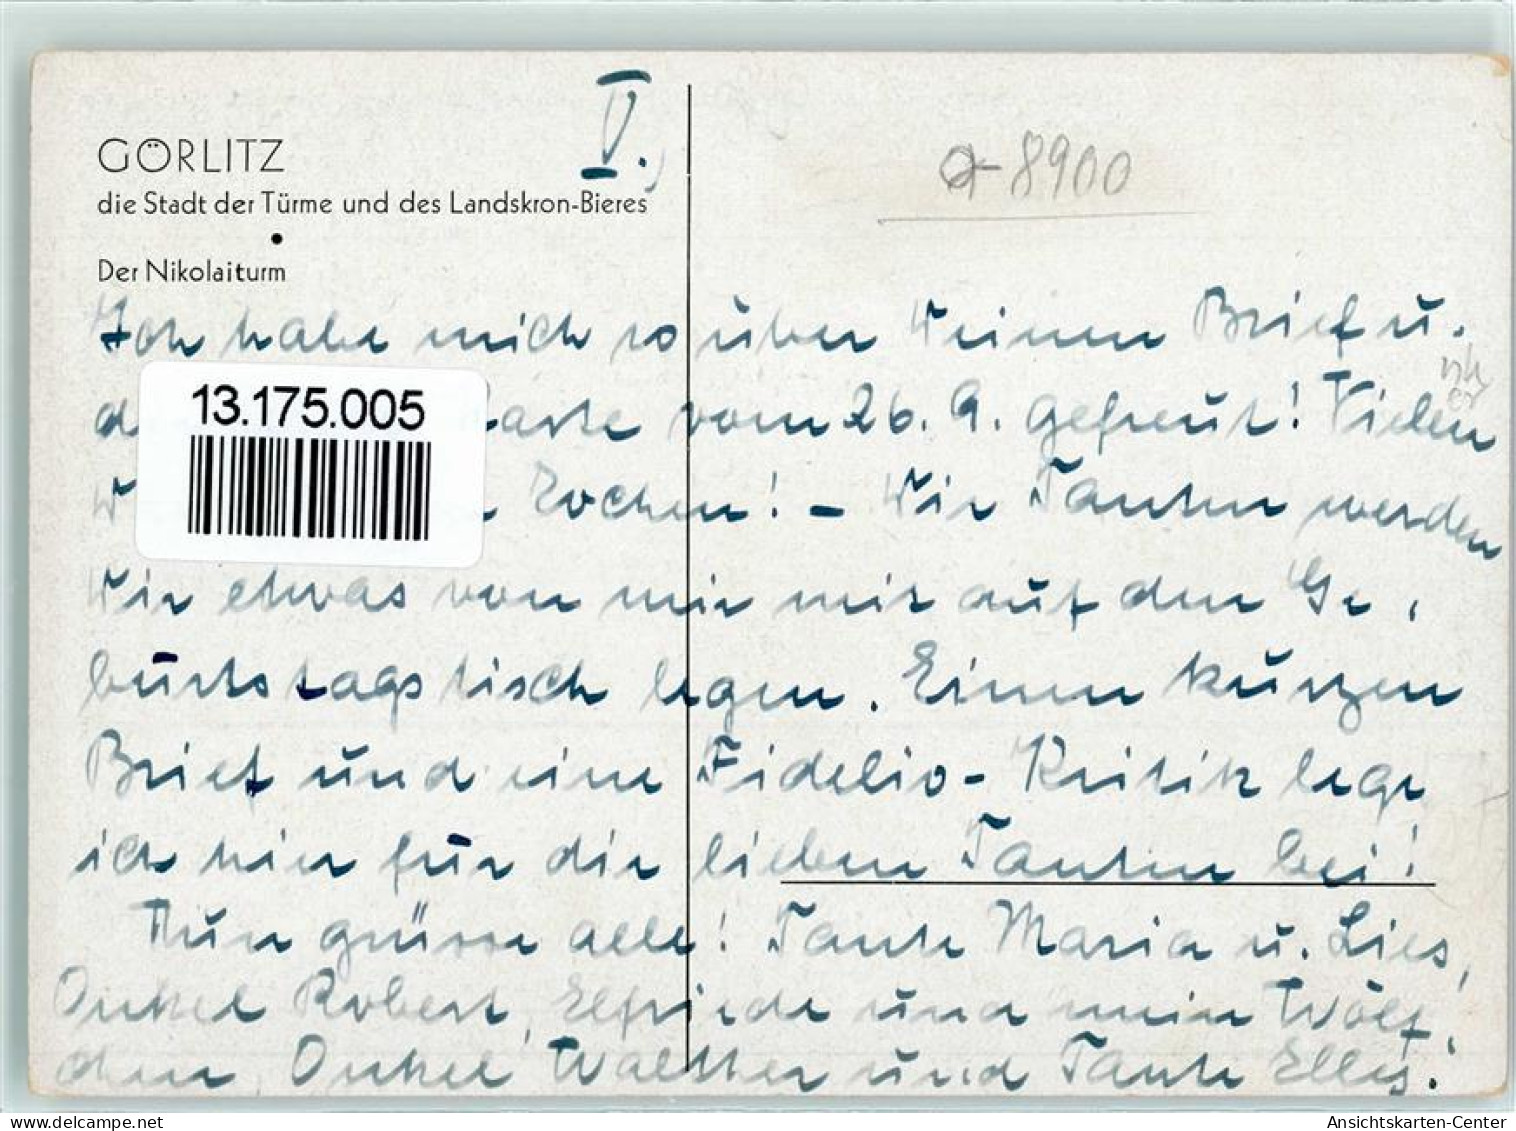 V.
GÖRLITZ
die Stadt der Türme und des Landskron-Bieres
Der Nikolaiturm
a-8900
13.175.005
Ich habe mich so über Deinen Brief u.
d Karte vom 26. 9. gefreut! Vielen
Kochen! - Die Tanten werden
Dir etwas von mir mit auf den Ge-
burtstagstisch legen. Einen kurzen
Brief und eine Fidelio-Kritik lege
ich hier für die lieben Tanten bei!
Nun grüsse alle! Tante Maria u. Lies,
Onkel Robert, Elfriede und mein Wölf-
chen, Onkel Walther und Tante Elly!
delcampe.net
Ansichtskarten-Center